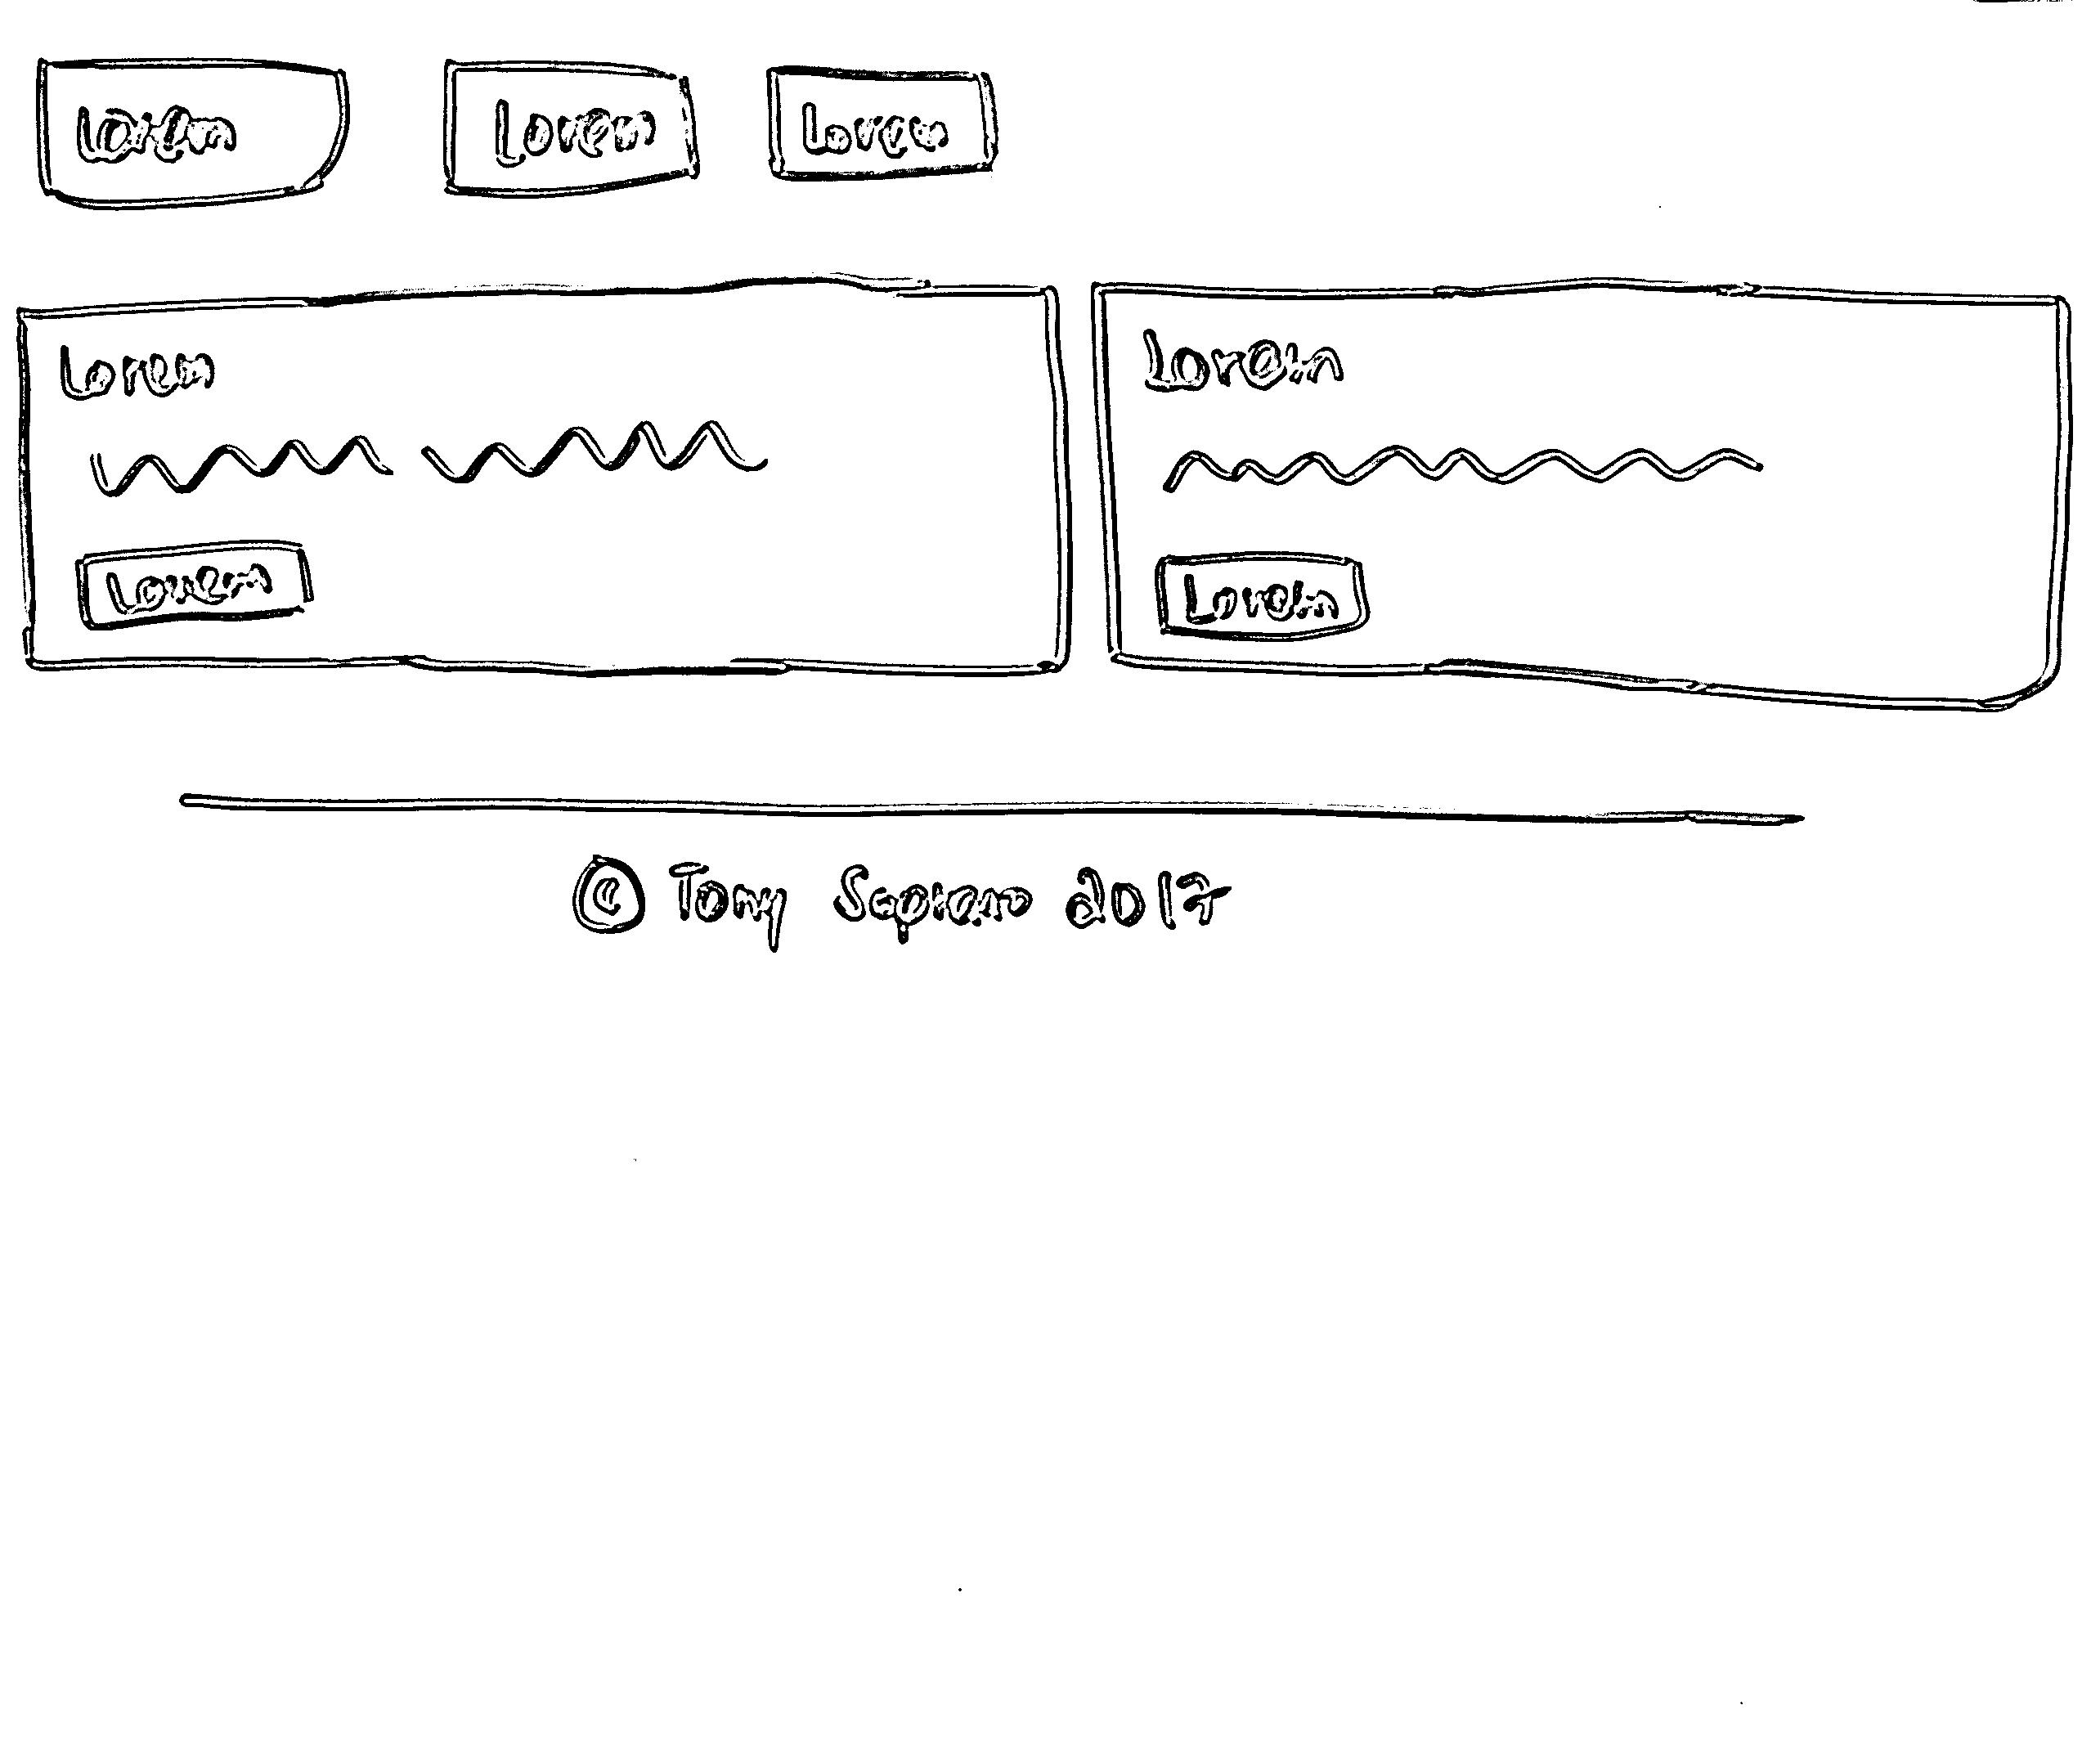 Lorem Lorem Lorem
Lorem Lorem
Lorem Lorem
© Tony Soprano 2017